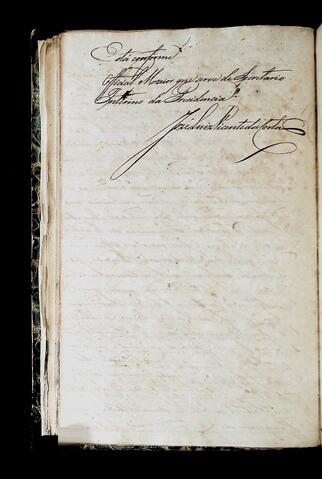 Está conforme
Official Maior que serve de Secretario
Interino da Presidencia
José Luiz Vicente da Costa